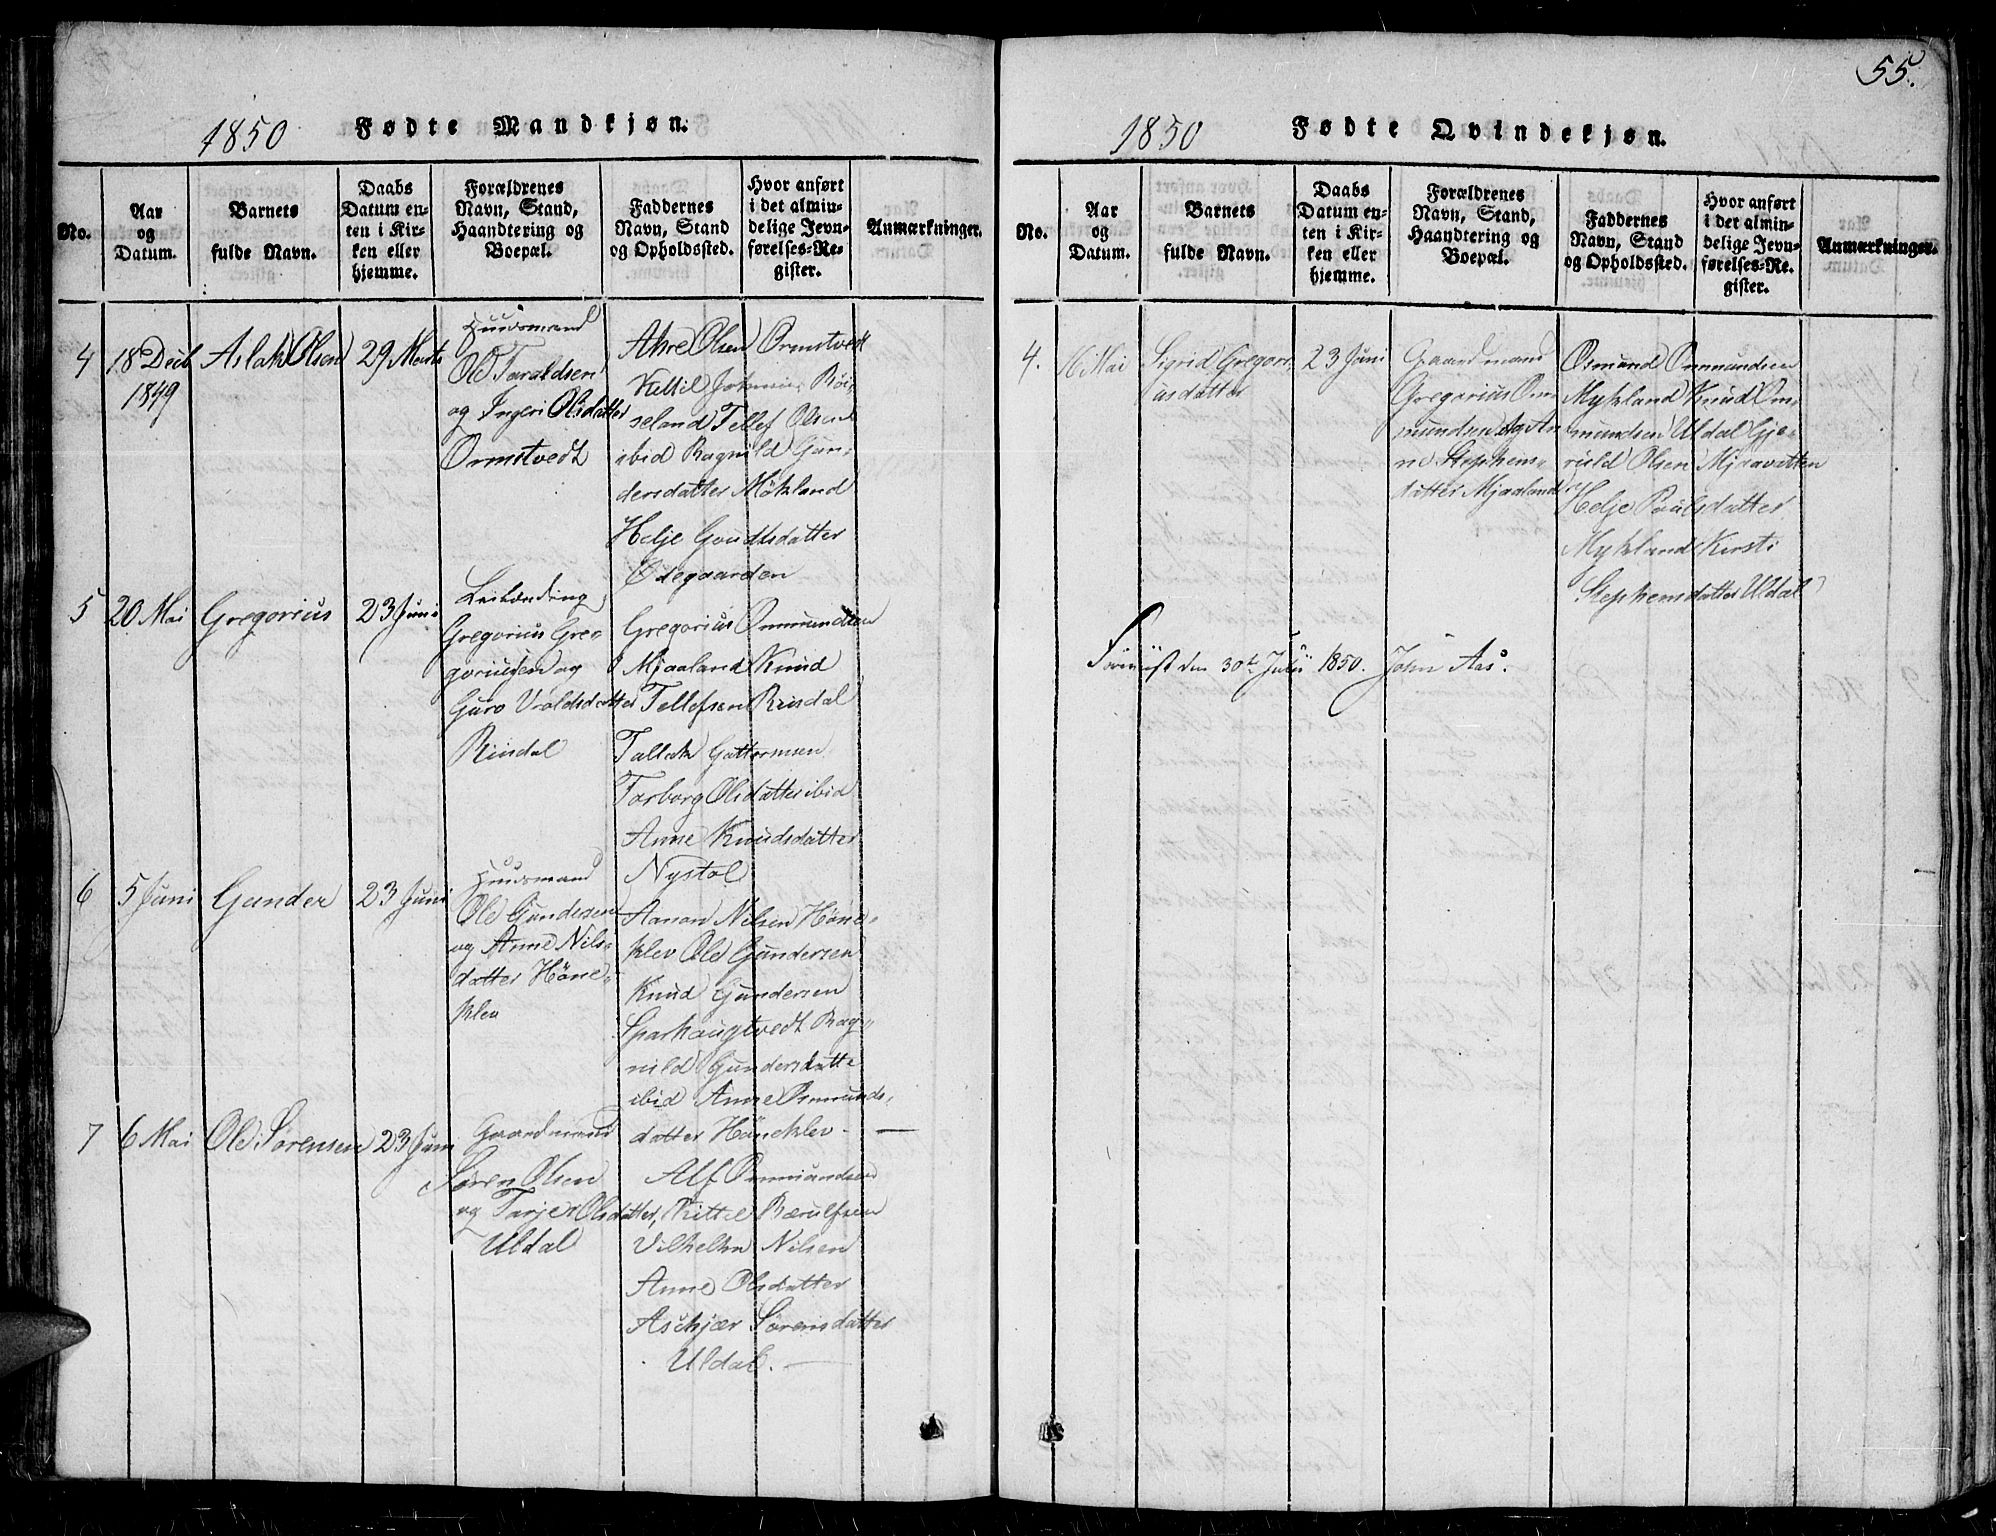 55.
1850 Fødte Mandkjøn.
No.
Aar
og
Datum.
Barnets
fulde Navn.
Daabs
Datum en-
ten i Kir-
ken eller
hjemme.
Forældrenes
Navn, Stand,
Haandtering og
Boepæl.
Faddernes
Navn, Stand
og Opholdssted.
Hvor anført
i det almin-
delige Jevn-
førelses-Re-
gister.
Anmærkninger.
4
18 Decb
1849
Aslak Olsen
29 Marts
Huusmand
Ole Taraldsen
og Ingeri Olsdatter
Ormstvedt
Ahre Olsen Ormstvedt
Kittil Röi-
seland Tellef Olsen
ibid Ragnild Gun-
dersdatter Mökland
Helje Goudtsdatter
Ödegaarden
5
20 Mai
Gregorius
23 Juni
Leilænding
Gregorius Gre-
goriusen og
Guro Vroldsdatter
Rinsdal
Gregorius Ommundsen
Mjaaland Knud
Tellefsen Rinsdal
Tallak Guttormsen
Torborg Olsdatter ibid
Anne Knudsdatter
Nystøl
6
5 Juni
Gunder
23 Juni
Huusmand
Ole Gundersen
og Anne Nils-
datter Höne-
klev
Aanon Nilsen Höne-
klev Ole Gundersen
Knud Gundersen
Sparhaugtvedt Rag-
nild Gundersdatte
ibid Anne Osmunds-
datter Höneklev -
7
6 Mai
Ole Sørensen
23 Juni
Gaardmand
Søren Olsen
og Tarjer Olsdatter,
Uldal
Alf Ommundsen
Kittel Bærulfsen
Vilhelm Nilsen
Anne Olsdatter
Aschjær Sörensdatter
Uldal. -
1850 Fødte Qvindekjøn.
No.
Aar
og
Datum.
Barnets
fulde Navn.
Daabs
Datum en-
ten i Kir-
ken eller
hjemme.
Forældrenes
Navn, Stand,
Haandtering og
Boepæl.
Faddernes
Navn, Stand
og Opholdssted.
Hvor anført
i det almin-
delige Jevn-
førelses-Re-
gister.
Anmærkninger.
4.
16 Mai
Sigrid Gregori-
usdatter
23 Juni
Gaardmand
Gregorius Om-
mundsen og An-
ne Stephens-
datter Mjaaland
Osmund Ommundsen
Mykland Knud Om-
mundsen Uldal Gje-
ruld Olsen Mjaavatten
Helje Poulsdatter
Mykland Kirsti
Stephensdatter Uldal
den 30te Julii 1850. John Aas.